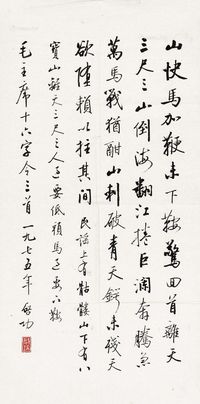 山快馬加鞭未下鞍驚回首離天
三尺三山倒海翻江捲巨瀾奔騰急
萬馬戰猶酣山刺破青天鍔未殘天
欲墮賴以拄其間 民謠上有骷髏山下有八
寶山離天三尺三人過要低頭馬過要下鞍
毛主席十六字令三首 一九七五年 啓功